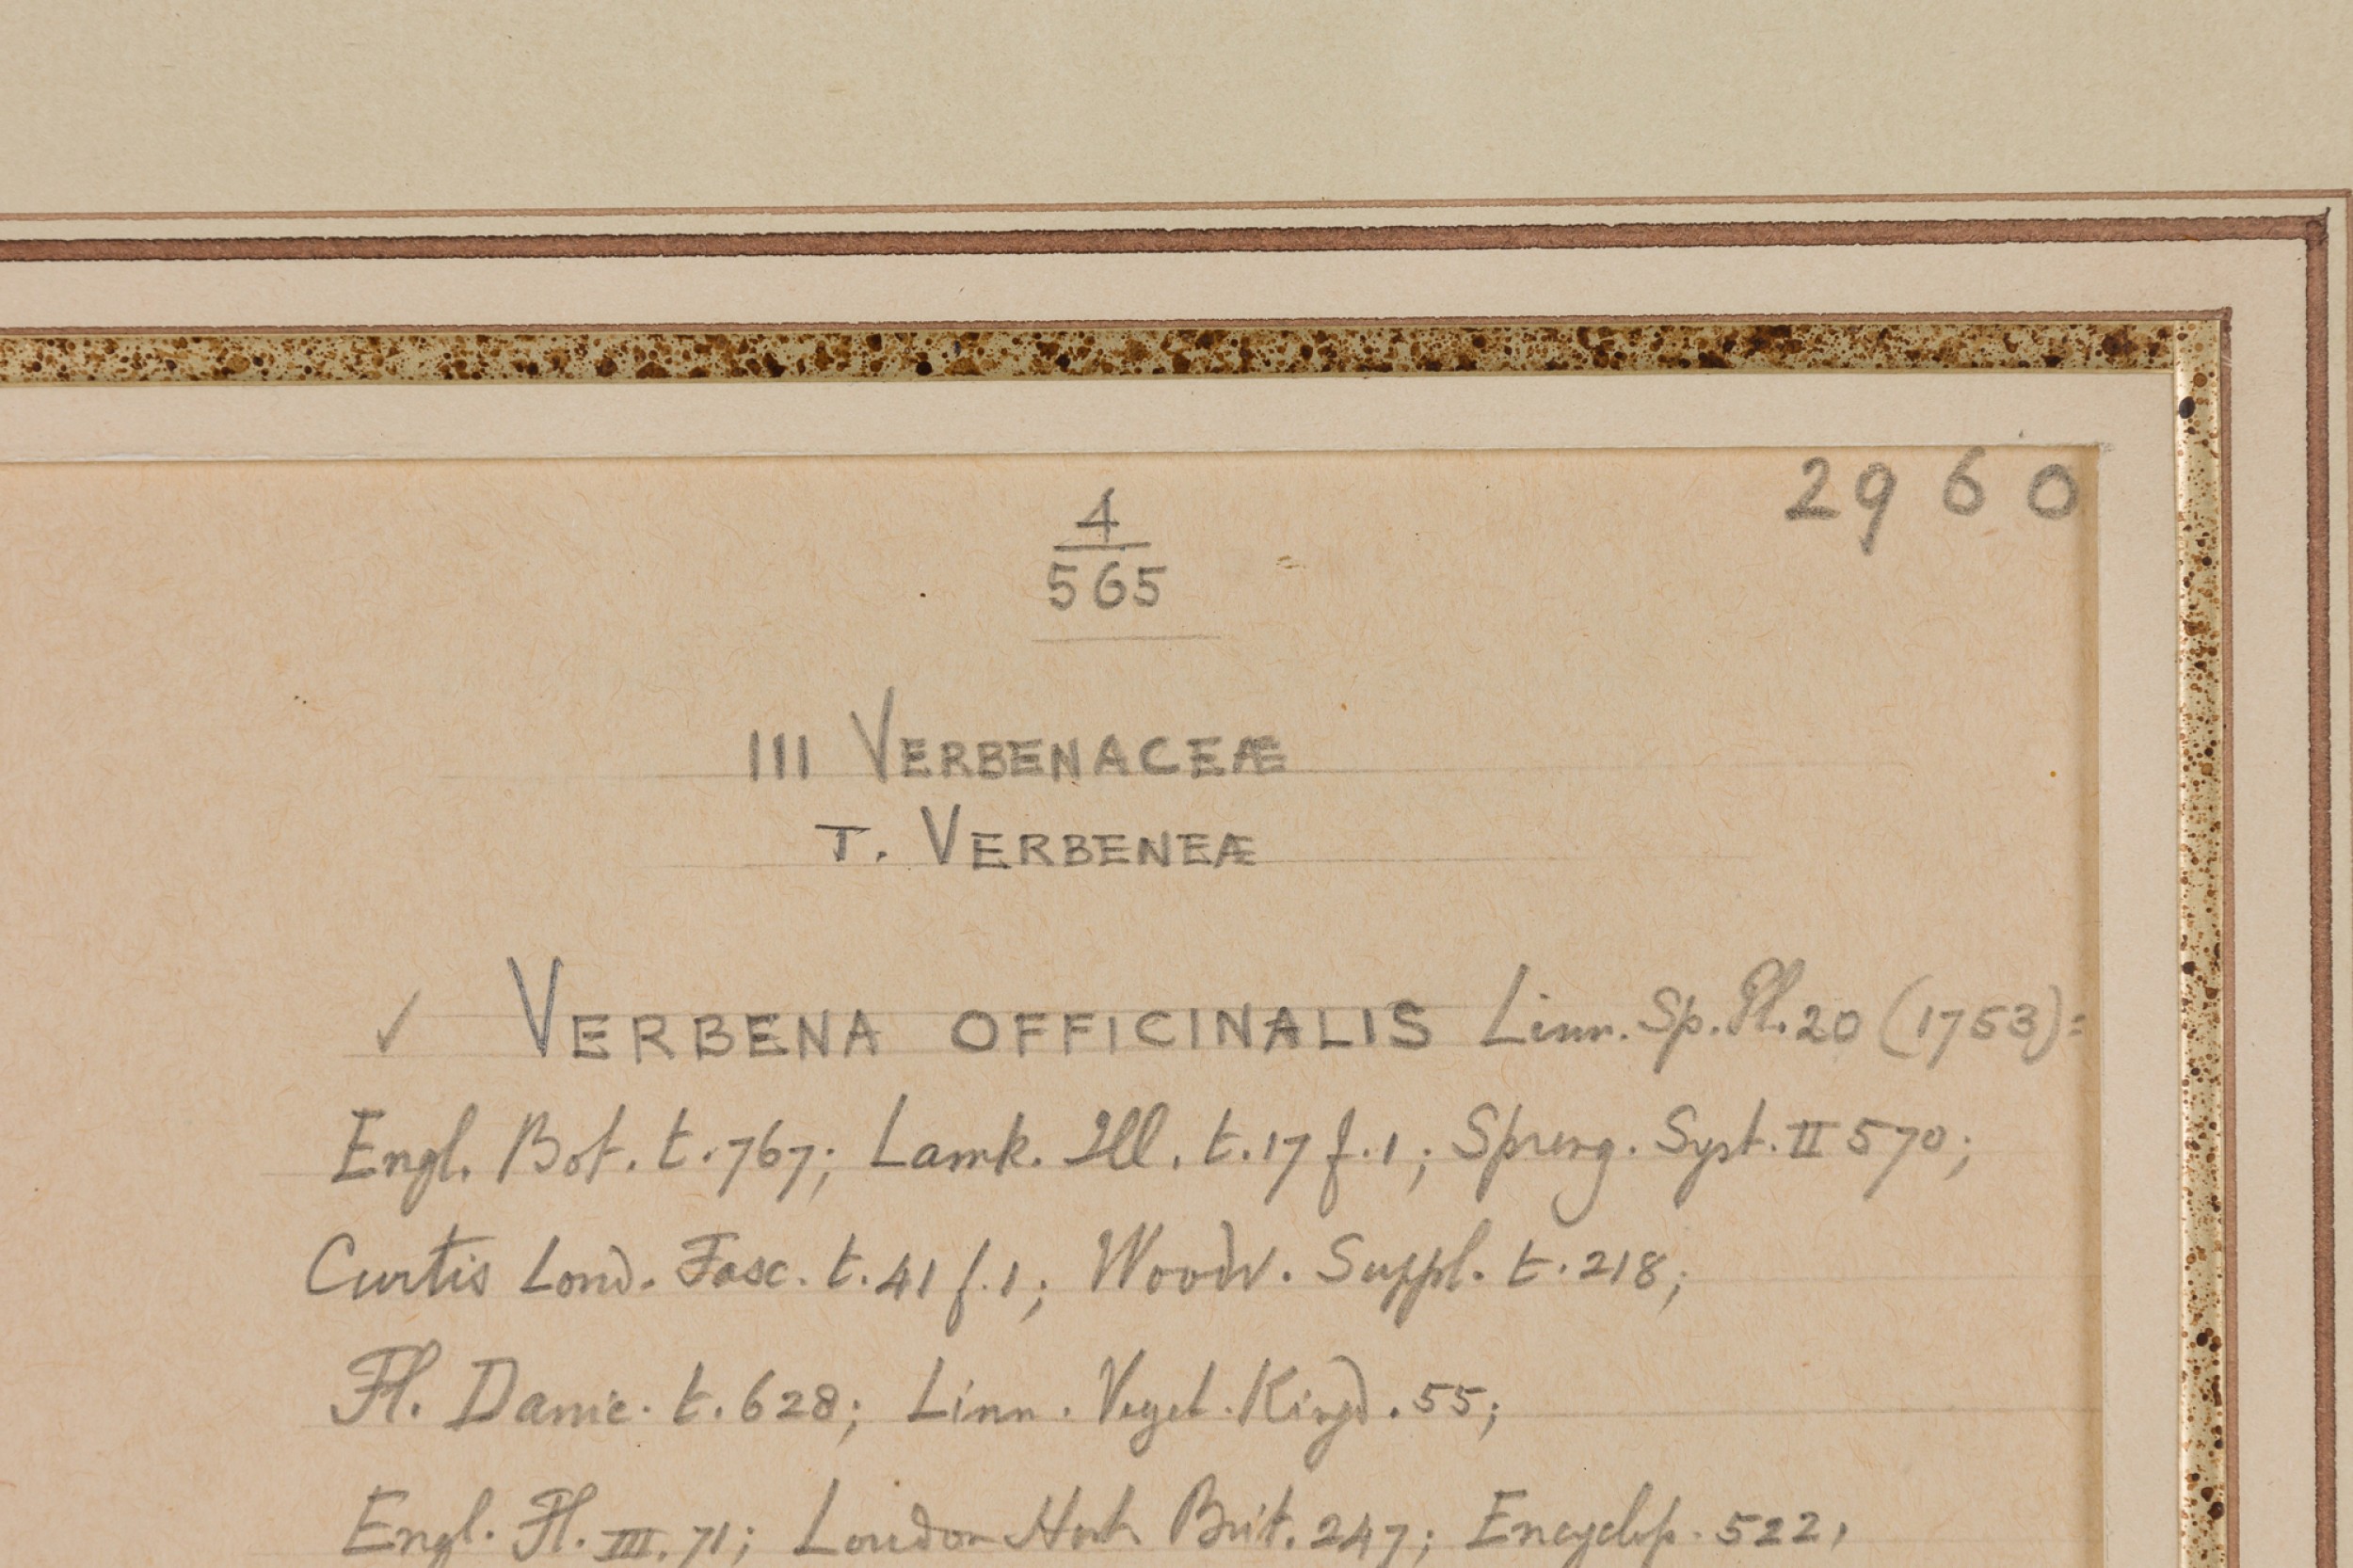 2960
4
565
III VERBENACEÆ
T. VERBENEÆ
✓ VERBENA OFFICINALIS Linn. Sp. Pl. 20 (1753):
Engl. Bot. t. 767; Lamk. Ill. t. 17 f. 1; Spreng. Syst. II 570;
Curtis Lond. Fasc. t. 41 f. 1; Woodv. Suppl. t. 218;
Fl. Danic. t. 628; Linn. Veget. Kingd. 55;
Engl. Fl. III. 71; Loudon Hort. Brit. 247; Encyclop. 522,